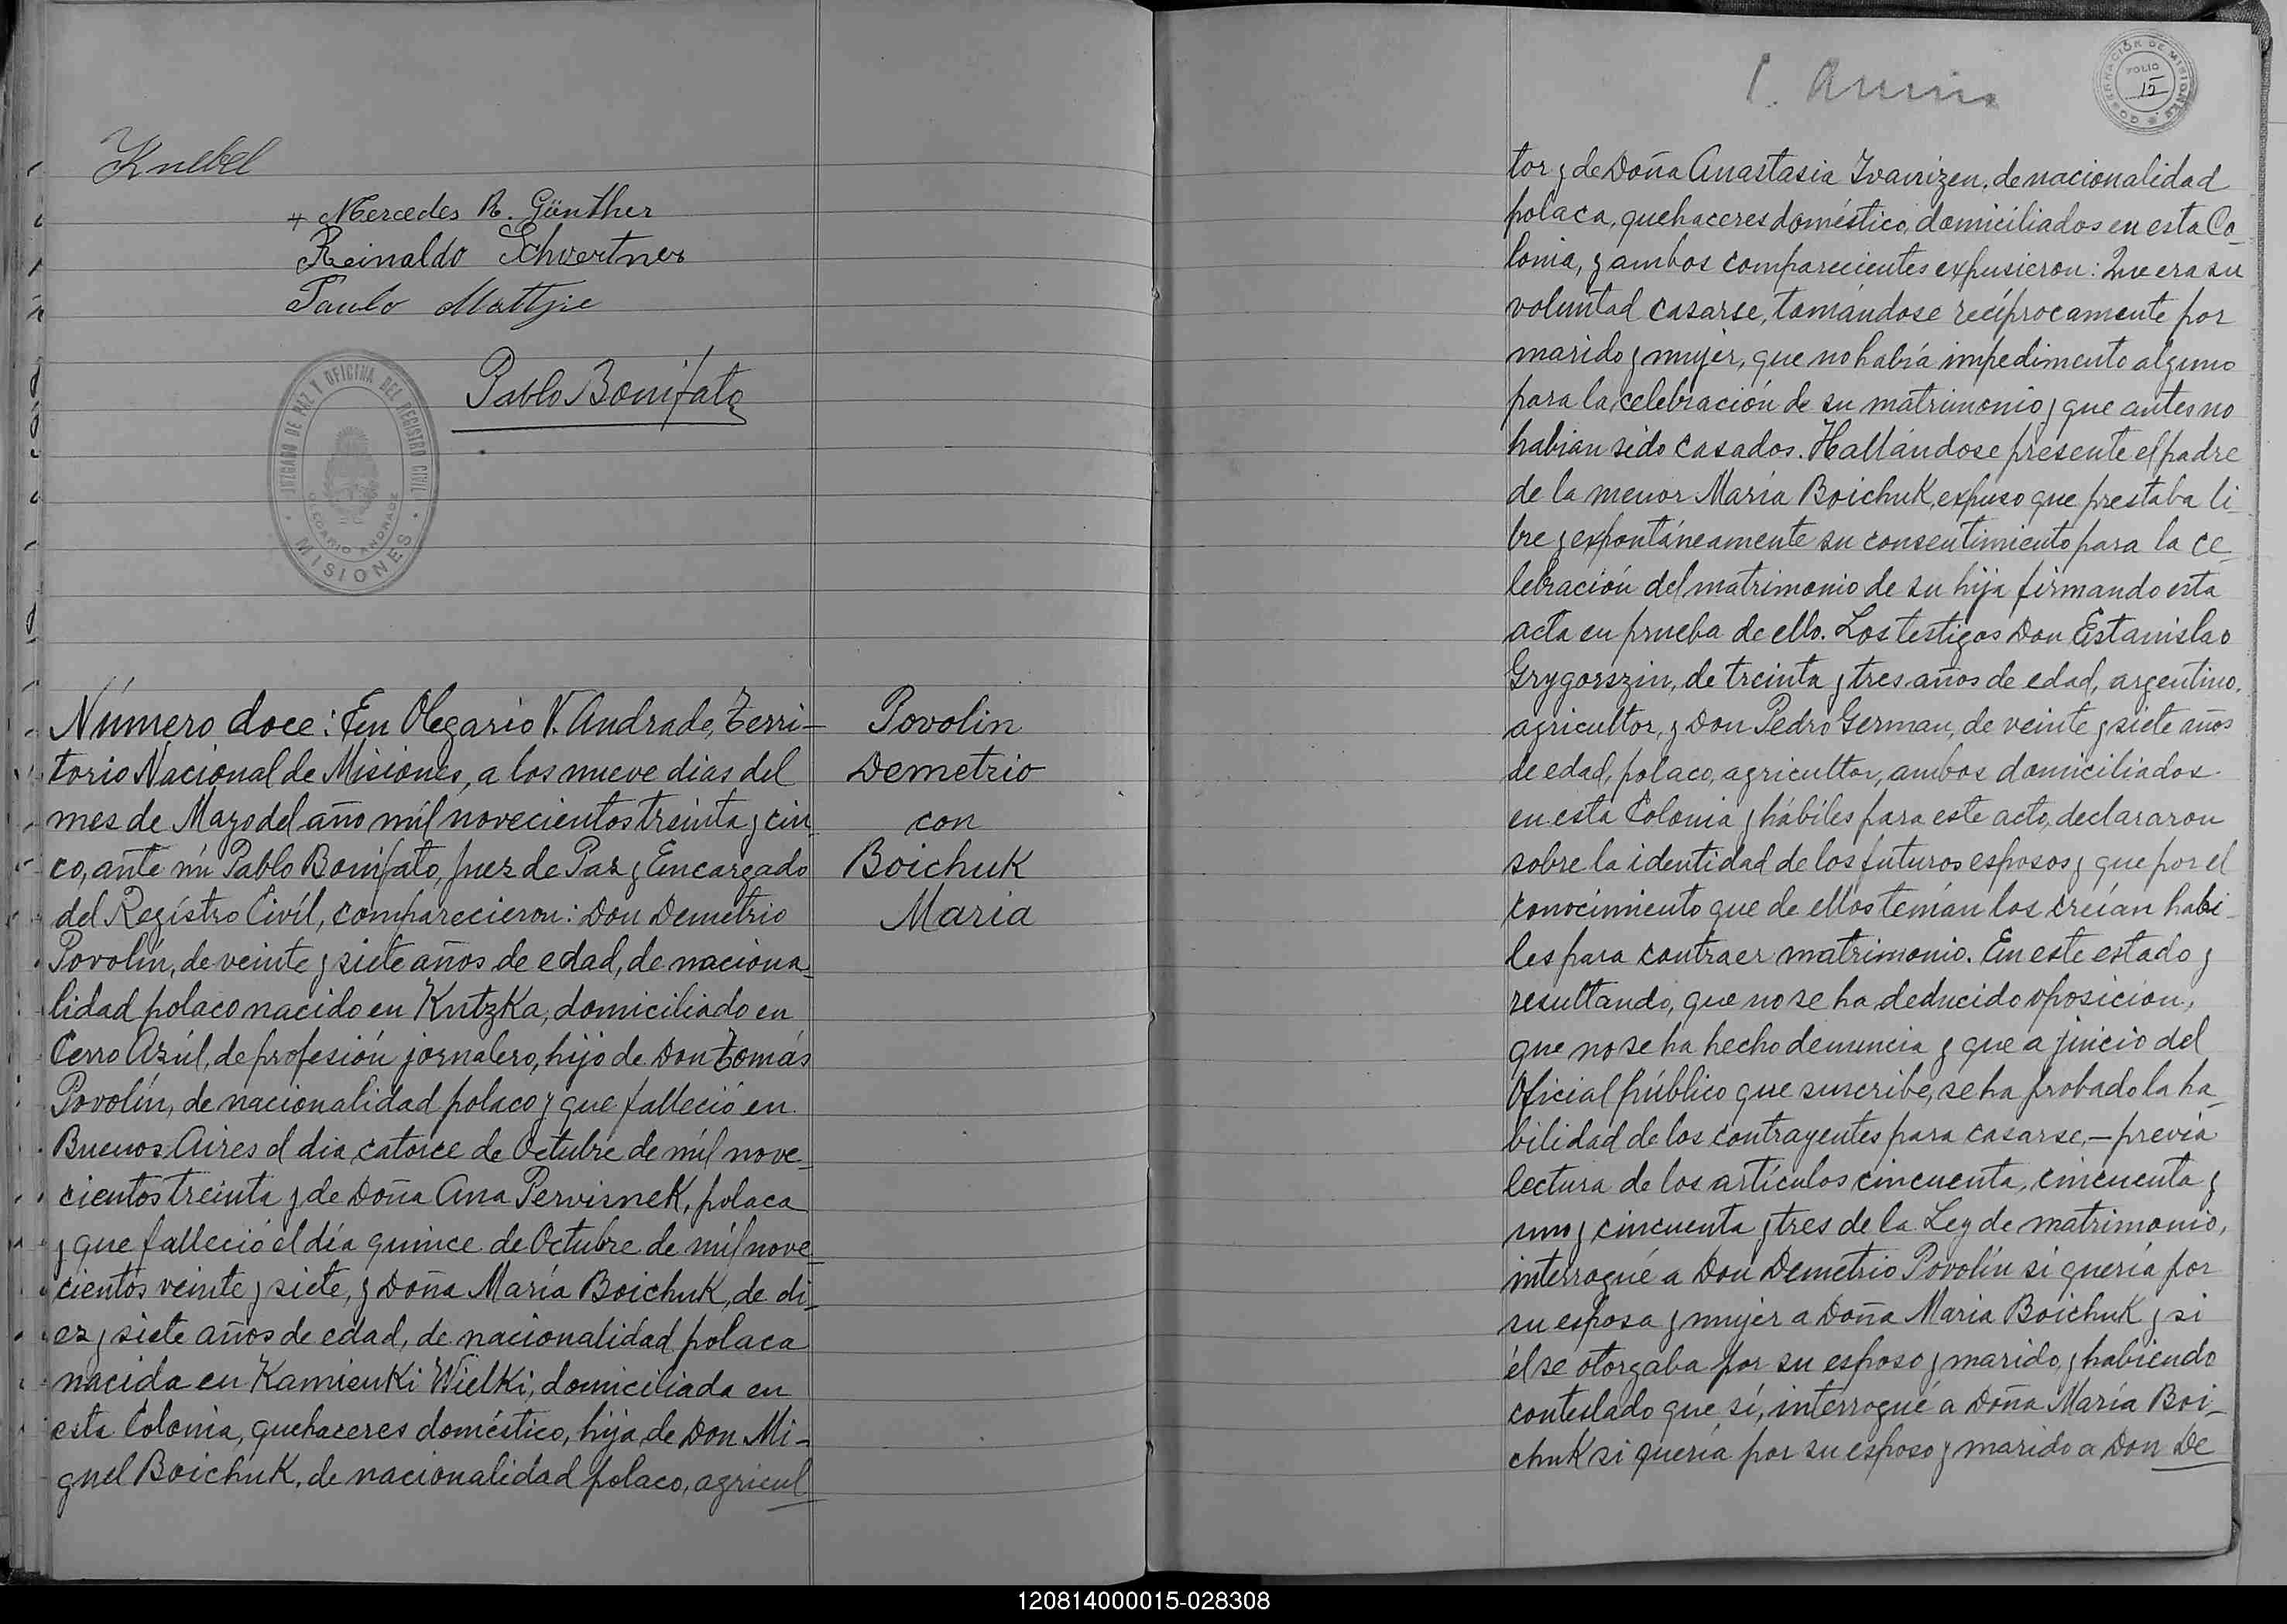 Knebel
+ Mercedes R. Günther
Reinaldo Schvertner
Paulo Mattjie
Pablo Bonifato
JUZGADO DE PAZ Y OFICINA DEL REGISTRO CIVIL
OLEGARIO ANDRADE
MISIONES
Número doce: En Olegario V. Andrade, Terri-
torio Nacional de Misiones, a los nueve dias del
mes de Mayo del año mil novecientos treinta y cin_
co, ante mi Pablo Bonifato, Juez de Paz y Encargado
del Registro Civíl, comparecieron: Don Demetrio
Povolín, de veinte y siete años de edad, de naciona_
lidad polaco nacido en Krutzka, domiciliado en
Cerro Azúl, de profesión jornalero, hijo de Don Tomás
Povolín, de nacionalidad polaco y que falleció en
Buenos Aires el dia catorce de Octubre de míl nove_
cientos treinta y de Doña Ana Pervisnek, polaca
y que falleció el día quince de Octubre de míl nove_
cientos veinte y siete, y Doña María Boichuk, de di_
ez y siete años de edad, de nacionalidad polaca
nacida en Kamienki Wielki, domiciliada en
esta Colonia, quehaceres doméstico, hija de Don Mi-
guel Boichuk, de nacionalidad polaco, agricul_
Povolin
Demetrio
con
Boichuk
Maria
GOBERNACIÓN DE MISIONES
FOLIO
12
tor y de Doña Anastasia Ivanizen, de nacionalidad
polaca, quehaceres doméstico, domiciliados en esta Co_
lonia, y ambos comparecientes expusieron: Que era su
voluntad casarse, tomándose recíprocamente por
marido y mujer, que no había impedimento alguno
para la celebración de su matrimonio y que antes no
habian sido casados. Hallándose presente el padre
de la menor María Boichuk, expuso que prestaba li_
bre y expontáneamente su consentimiento para la ce_
lebración del matrimonio de su hija firmando esta
acta en prueba de ello. Los testigos Don Estanislao
Grygorszin, de treinta y tres años de edad, argentino,
agricultor, y Don Pedro German, de veinte y siete años
de edad, polaco, agricultor, ambos domiciliados
en esta Colonia y hábiles para este acto, declararon
sobre la identidad de los futuros esposos y que por el
conocimiento que de ellos tenían los creían habi_
les para contraer matrimonio. En este estado y
resultando, que no se ha deducido oposicion,
que no se ha hecho denuncia y que a juicio del
Oficial público que suscribe, se ha probado la ha_
bilidad de los contrayentes para casarse,— previa
lectura de los artículos cincuenta, cincuenta y
uno y cincuenta y tres de la Ley de matrimonio,
interrogué a Don Demetrio Povolín si quería por
su esposa y mujer a Doña Maria Boichuk y si
él se otorgaba por su esposo y marido, y habiendo
contestado que sí, interrogué a Doña María Boi_
chuk si quería por su esposo y marido a Don De
120814000015-028308